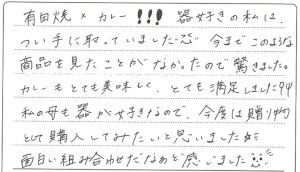 有田焼×カレー!!! 器好きの私は、
つい手に取っていました 今までこのような
商品を見たことがなかったので驚きました。
カレーもとても美味しく、とても満足しました
私の母も器が好きなので、今度は贈り物
として購入してみたいと思いました
面白い組み合わせだなあと感じました